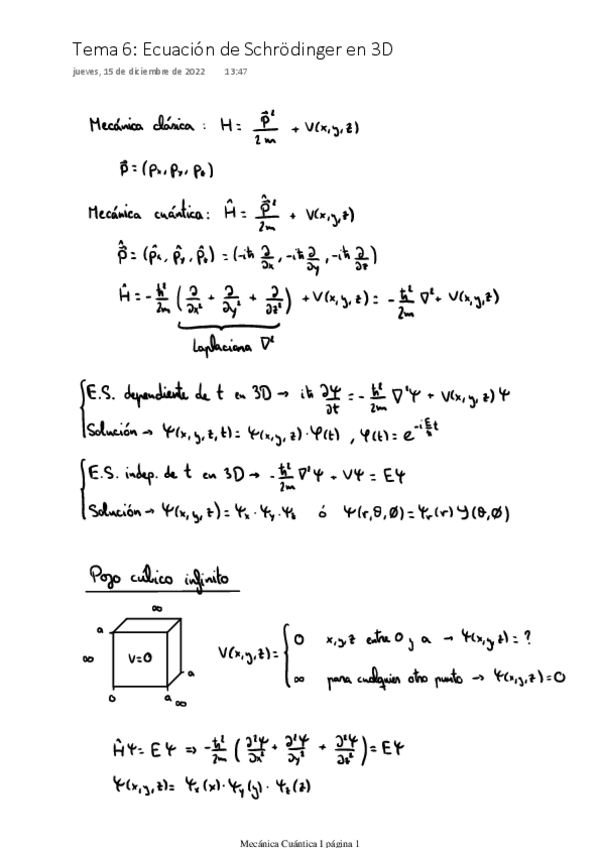 Tema 6: Ecuación de Schrödinger en 3D
jueves, 15 de diciembre de 2022 13:47
Mecánica clásica : H = p⃗²/2m + V(x,y,z)
p⃗ = (pₓ, p_y, p_z)
Mecánica cuántica: Ĥ = p̂⃗²/2m + V(x,y,z)
p̂⃗ = (p̂ₓ, p̂_y, p̂_z) = (-iħ ∂/∂x, -iħ ∂/∂y, -iħ ∂/∂z)
Ĥ = -ħ²/2m (∂/∂x² + ∂/∂y² + ∂/∂z²) + V(x,y,z) = -ħ²/2m ∇² + V(x,y,z)
Laplaciana ∇²
E.S. dependiente de t en 3D → iħ ∂Ψ/∂t = -ħ²/2m ∇²Ψ + V(x,y,z)Ψ
Solución → Ψ(x,y,z,t) = Ψ(x,y,z)·φ(t) , φ(t) = e^(-i E/ħ t)
E.S. indep. de t en 3D → -ħ²/2m ∇²Ψ + VΨ = EΨ
Solución → Ψ(x,y,z) = Ψₓ·Ψ_y·Ψ_z ó Ψ(r,θ,ø) = Ψ_r(r) Y(θ,ø)
Pozo cúbico infinito
∞
a
∞ V=0 a
0 a ∞
V(x,y,z) = { 0 x,y,z entre 0 y a → Ψ(x,y,z) = ?
∞ para cualquier otro punto → Ψ(x,y,z) = 0
ĤΨ = EΨ ⇒ -ħ²/2m (∂²Ψ/∂x² + ∂²Ψ/∂y² + ∂²Ψ/∂z²) = EΨ
Ψ(x,y,z) = Ψₓ(x)·Ψ_y(y)·Ψ_z(z)
Mecánica Cuántica I página 1